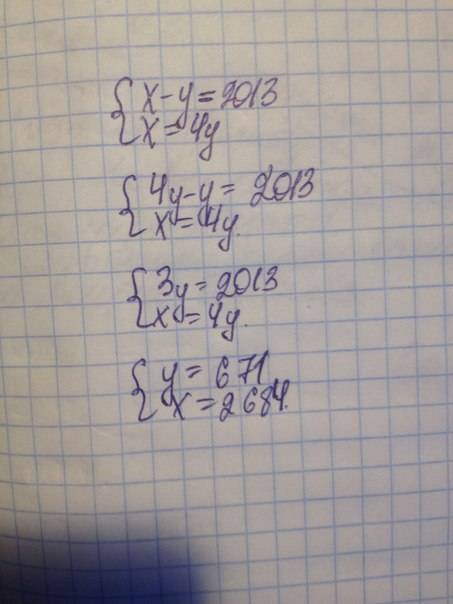 { x - y = 2013
x = 4y
{ 4y - y = 2013
x = 4y.
{ 3y = 2013
x = 4y.
{ y = 671
x = 2684.